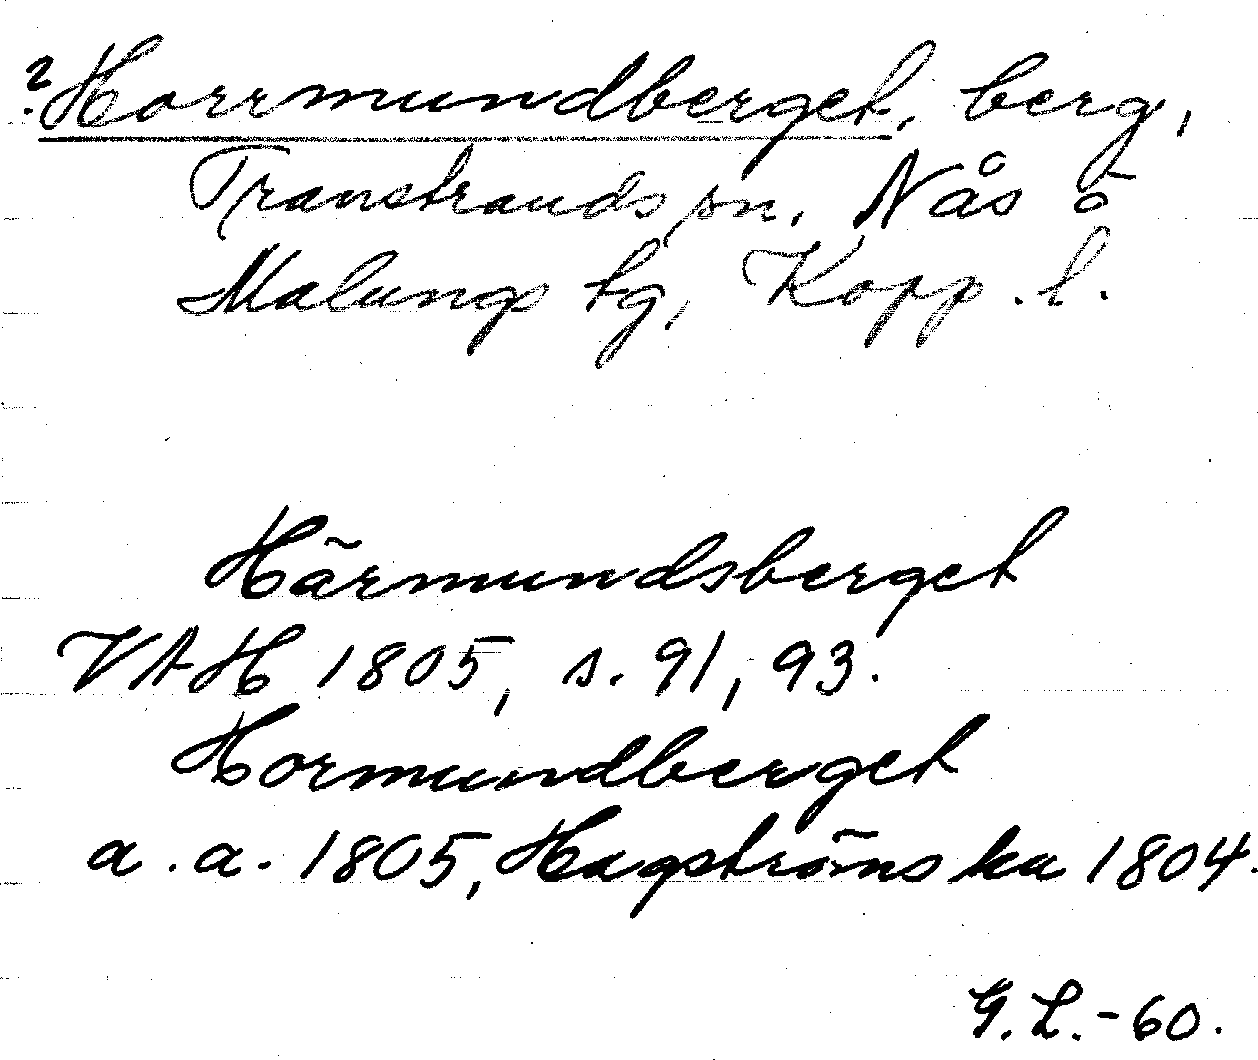 ? Horrmundberget, berg,
Transtrands sn, Nås o
Malungs tg, Kopp. l.
Härmundsberget
VAH 1805, s. 91, 93.
Hormundberget
a. a. 1805, Hagströms ka 1804.
G. L. - 60.